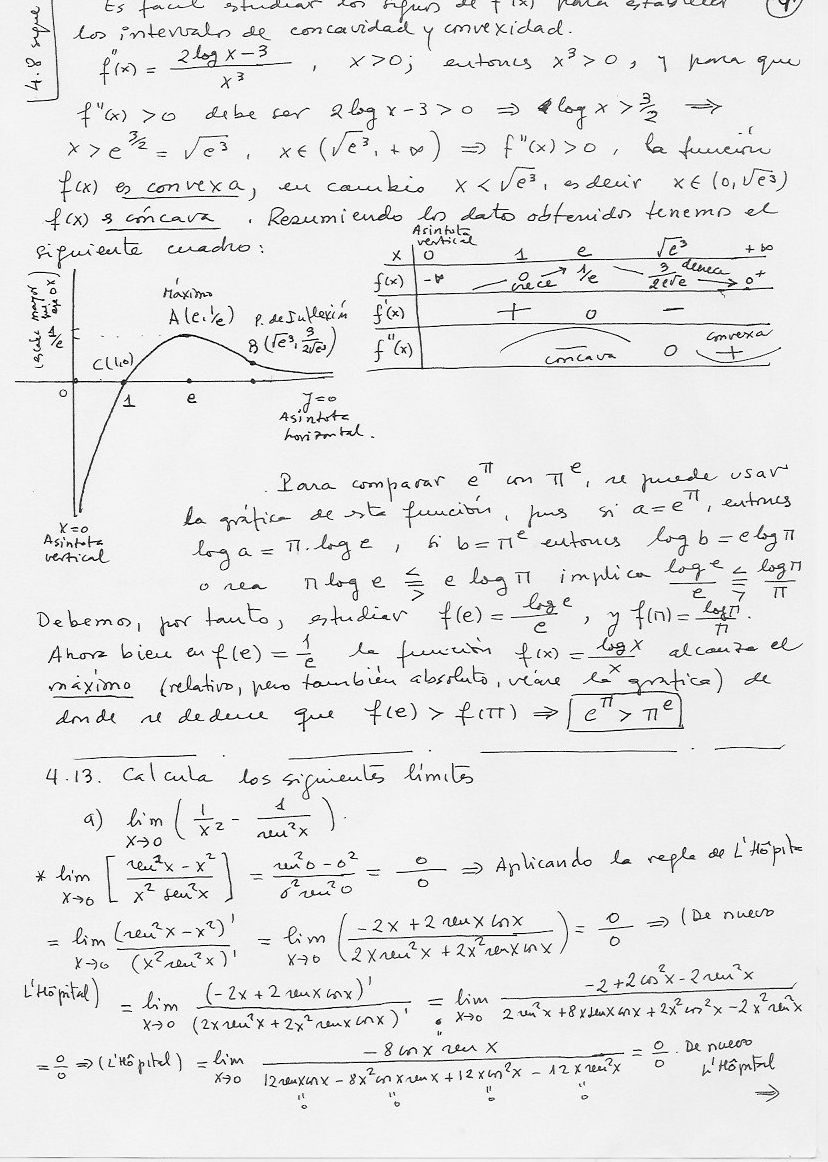 4.8 sigue
Es fácil estudiar los signos de f''(x) para establecer
los intervalos de concavidad y convexidad.
f''(x) = (2 log x − 3)/x³ , x>0; entonces x³>0, y para que
f''(x) > 0 debe ser 2 log x − 3 > 0 ⇒ log x > 3/2 ⇒
x > e^(3/2) = √e³, x ∈ (√e³, +∞) ⇒ f''(x) > 0, la función
f(x) es convexa, en cambio x < √e³, es decir x ∈ (0, √e³)
f(x) es cóncava. Resumiendo los datos obtenidos tenemos el
siguiente cuadro:
Asintota vertical
x | 0 1 e √e³ +∞
f(x) −∞ 0 crece 1/e 3/(2√e³) decrece 0⁺
f'(x) + 0 −
f''(x) − cóncava 0 convexa +
(escala mayor eje OX)
1/e
Máximo
A(e, 1/e)
P. de Inflexión
B(√e³, 3/(2√e³))
C(1,0)
0 1 e
y=0
Asintota
horizontal.
x=0
Asintota
vertical
Para comparar e^π con π^e, se puede usar
la gráfica de esta función, pues si a = e^π, entonces
log a = π·log e, si b = π^e entonces log b = e log π
o sea π log e ⪋ e log π implica (log e)/e ⪋ (log π)/π
Debemos, por tanto, estudiar f(e) = (log e)/e, y f(π) = (log π)/π.
Ahora bien en f(e) = 1/e la función f(x) = (log x)/x alcanza el
máximo (relativo, pero también absoluto, véase la gráfica) de
donde se deduce que f(e) > f(π) ⇒ e^π > π^e
4.13. Calcula los siguientes límites
a) lim x→0 (1/x² − 1/sen²x).
* lim x→0 [(sen²x − x²)/(x² sen²x)] = (sen²0 − 0²)/(0² sen²0) = 0/0 ⇒ Aplicando la regla de L'Hôpital
= lim x→0 (sen²x − x²)'/(x² sen²x)' = lim x→0 ((−2x + 2 senx cosx)/(2x sen²x + 2x² senx cosx)) = 0/0 ⇒ (De nuevo
L'Hôpital) = lim x→0 (−2x + 2 senx cosx)'/(2x sen²x + 2x² senx cosx)' = lim x→0 (−2 + 2cos²x − 2sen²x)/(2 sen²x + 8x senx cosx + 2x² cos²x − 2x² sen²x)
= 0/0 ⇒ (L'Hôpital) = lim x→0 (−8 cosx senx)/(12 senx cosx − 8x² cosx senx + 12x cos²x − 12x sen²x) = 0/0. De nuevo L'Hôpital
" 0 " 0 " 0 " 0
⇒